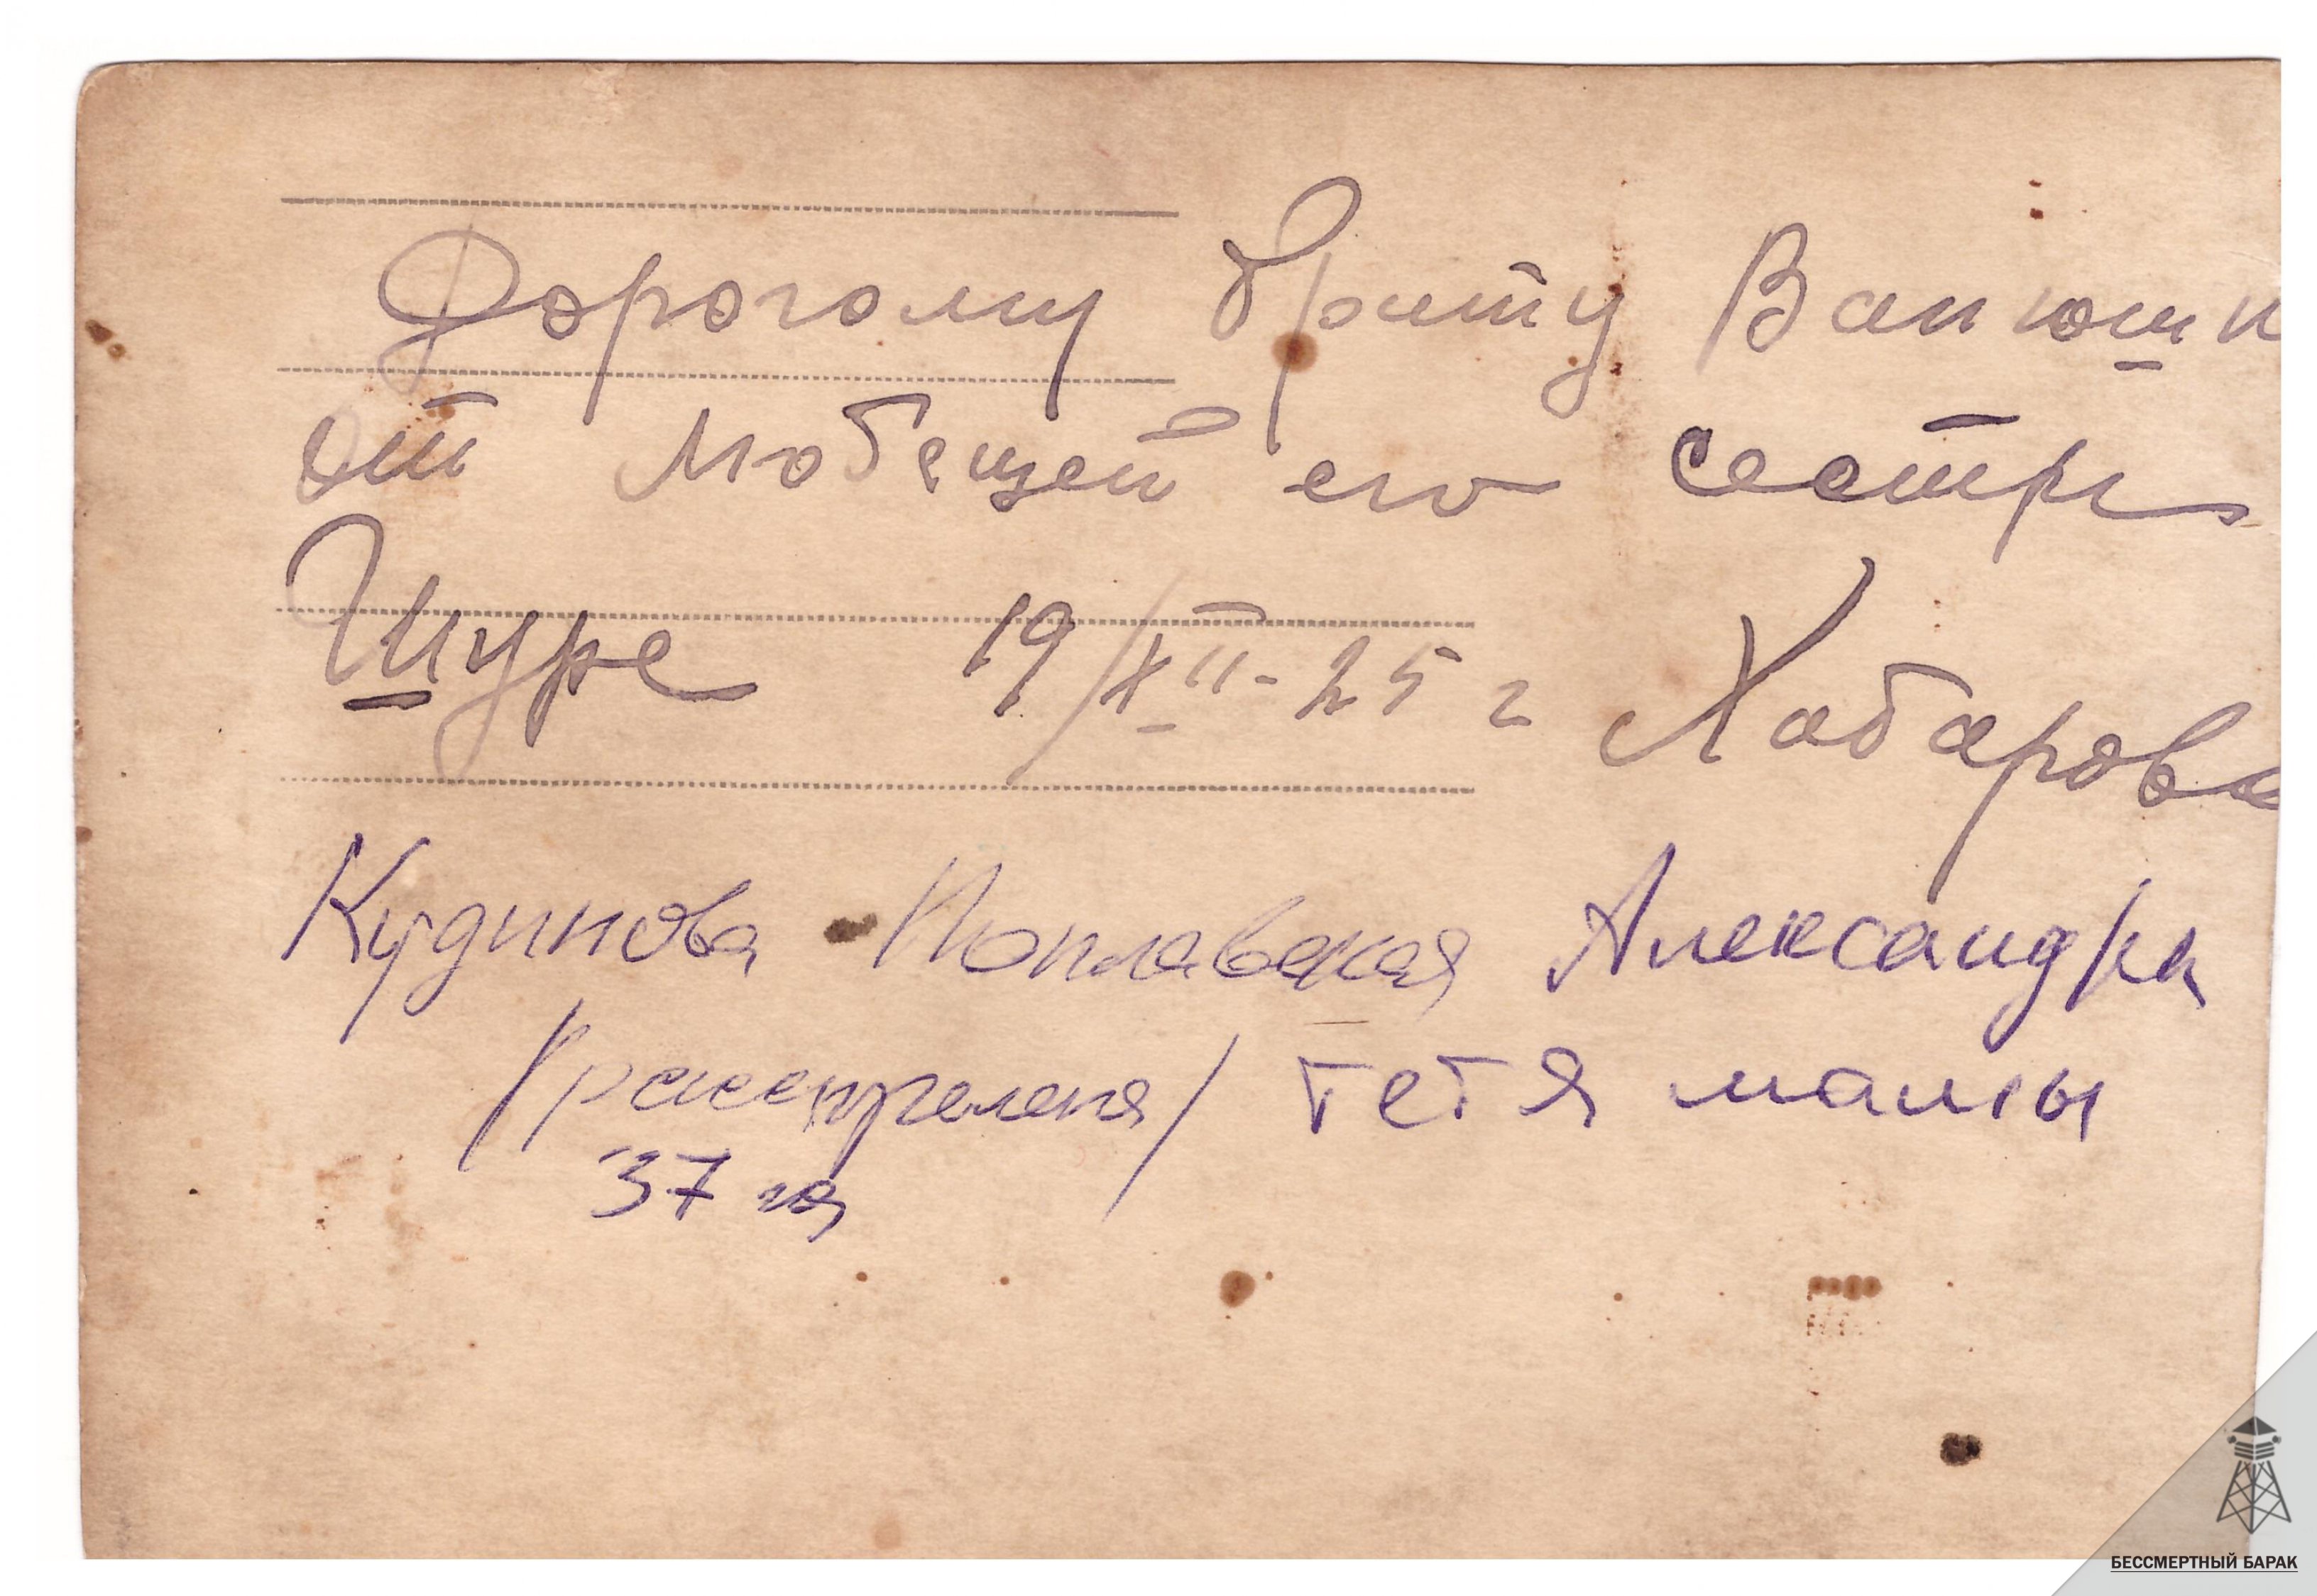 Дорогому брату Ванюши
от любещей его сестры
Шуре 19/XII-25 г Хабаровс
Кудинова Поплавская Александра
/расстреляна/ тетя мамы
37 г
БЕССМЕРТНЫЙ БАРАК